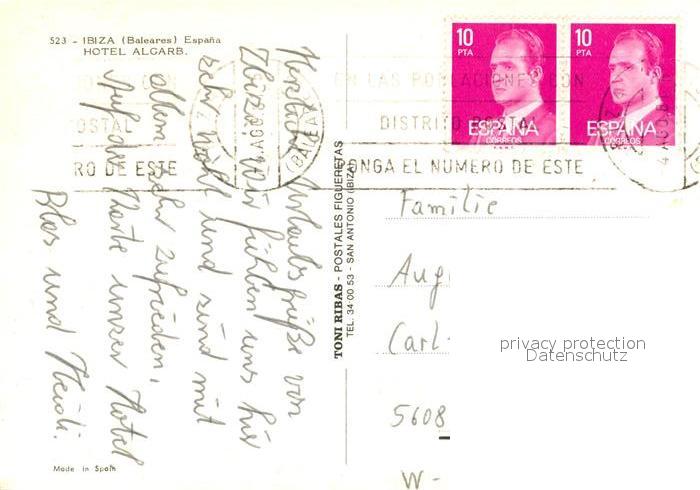 523 - IBIZA (Baleares) España
HOTEL ALGARB.
Herzliche Urlaubsgrüße von
Ibiza. Wir fühlen uns hier
sehr wohl und sind mit
allem sehr zufrieden.
Auf der Karte unser Hotel
und Heidi.
Made in Spain
TONI RIBAS - POSTALES FIGUERETAS
TEL. 34 00 53 - SAN ANTONIO (IBIZA)
10
PTA
ESPAÑA
CORREOS
10
PTA
ESPAÑA
CORREOS
EN LAS POBLACIONES CON
DISTRITO POSTAL
PONGA EL NUMERO DE ESTE
CON
POSTAL
RO DE ESTE
Familie
Aug
Carl-
5608
W -
privacy protection
Datenschutz